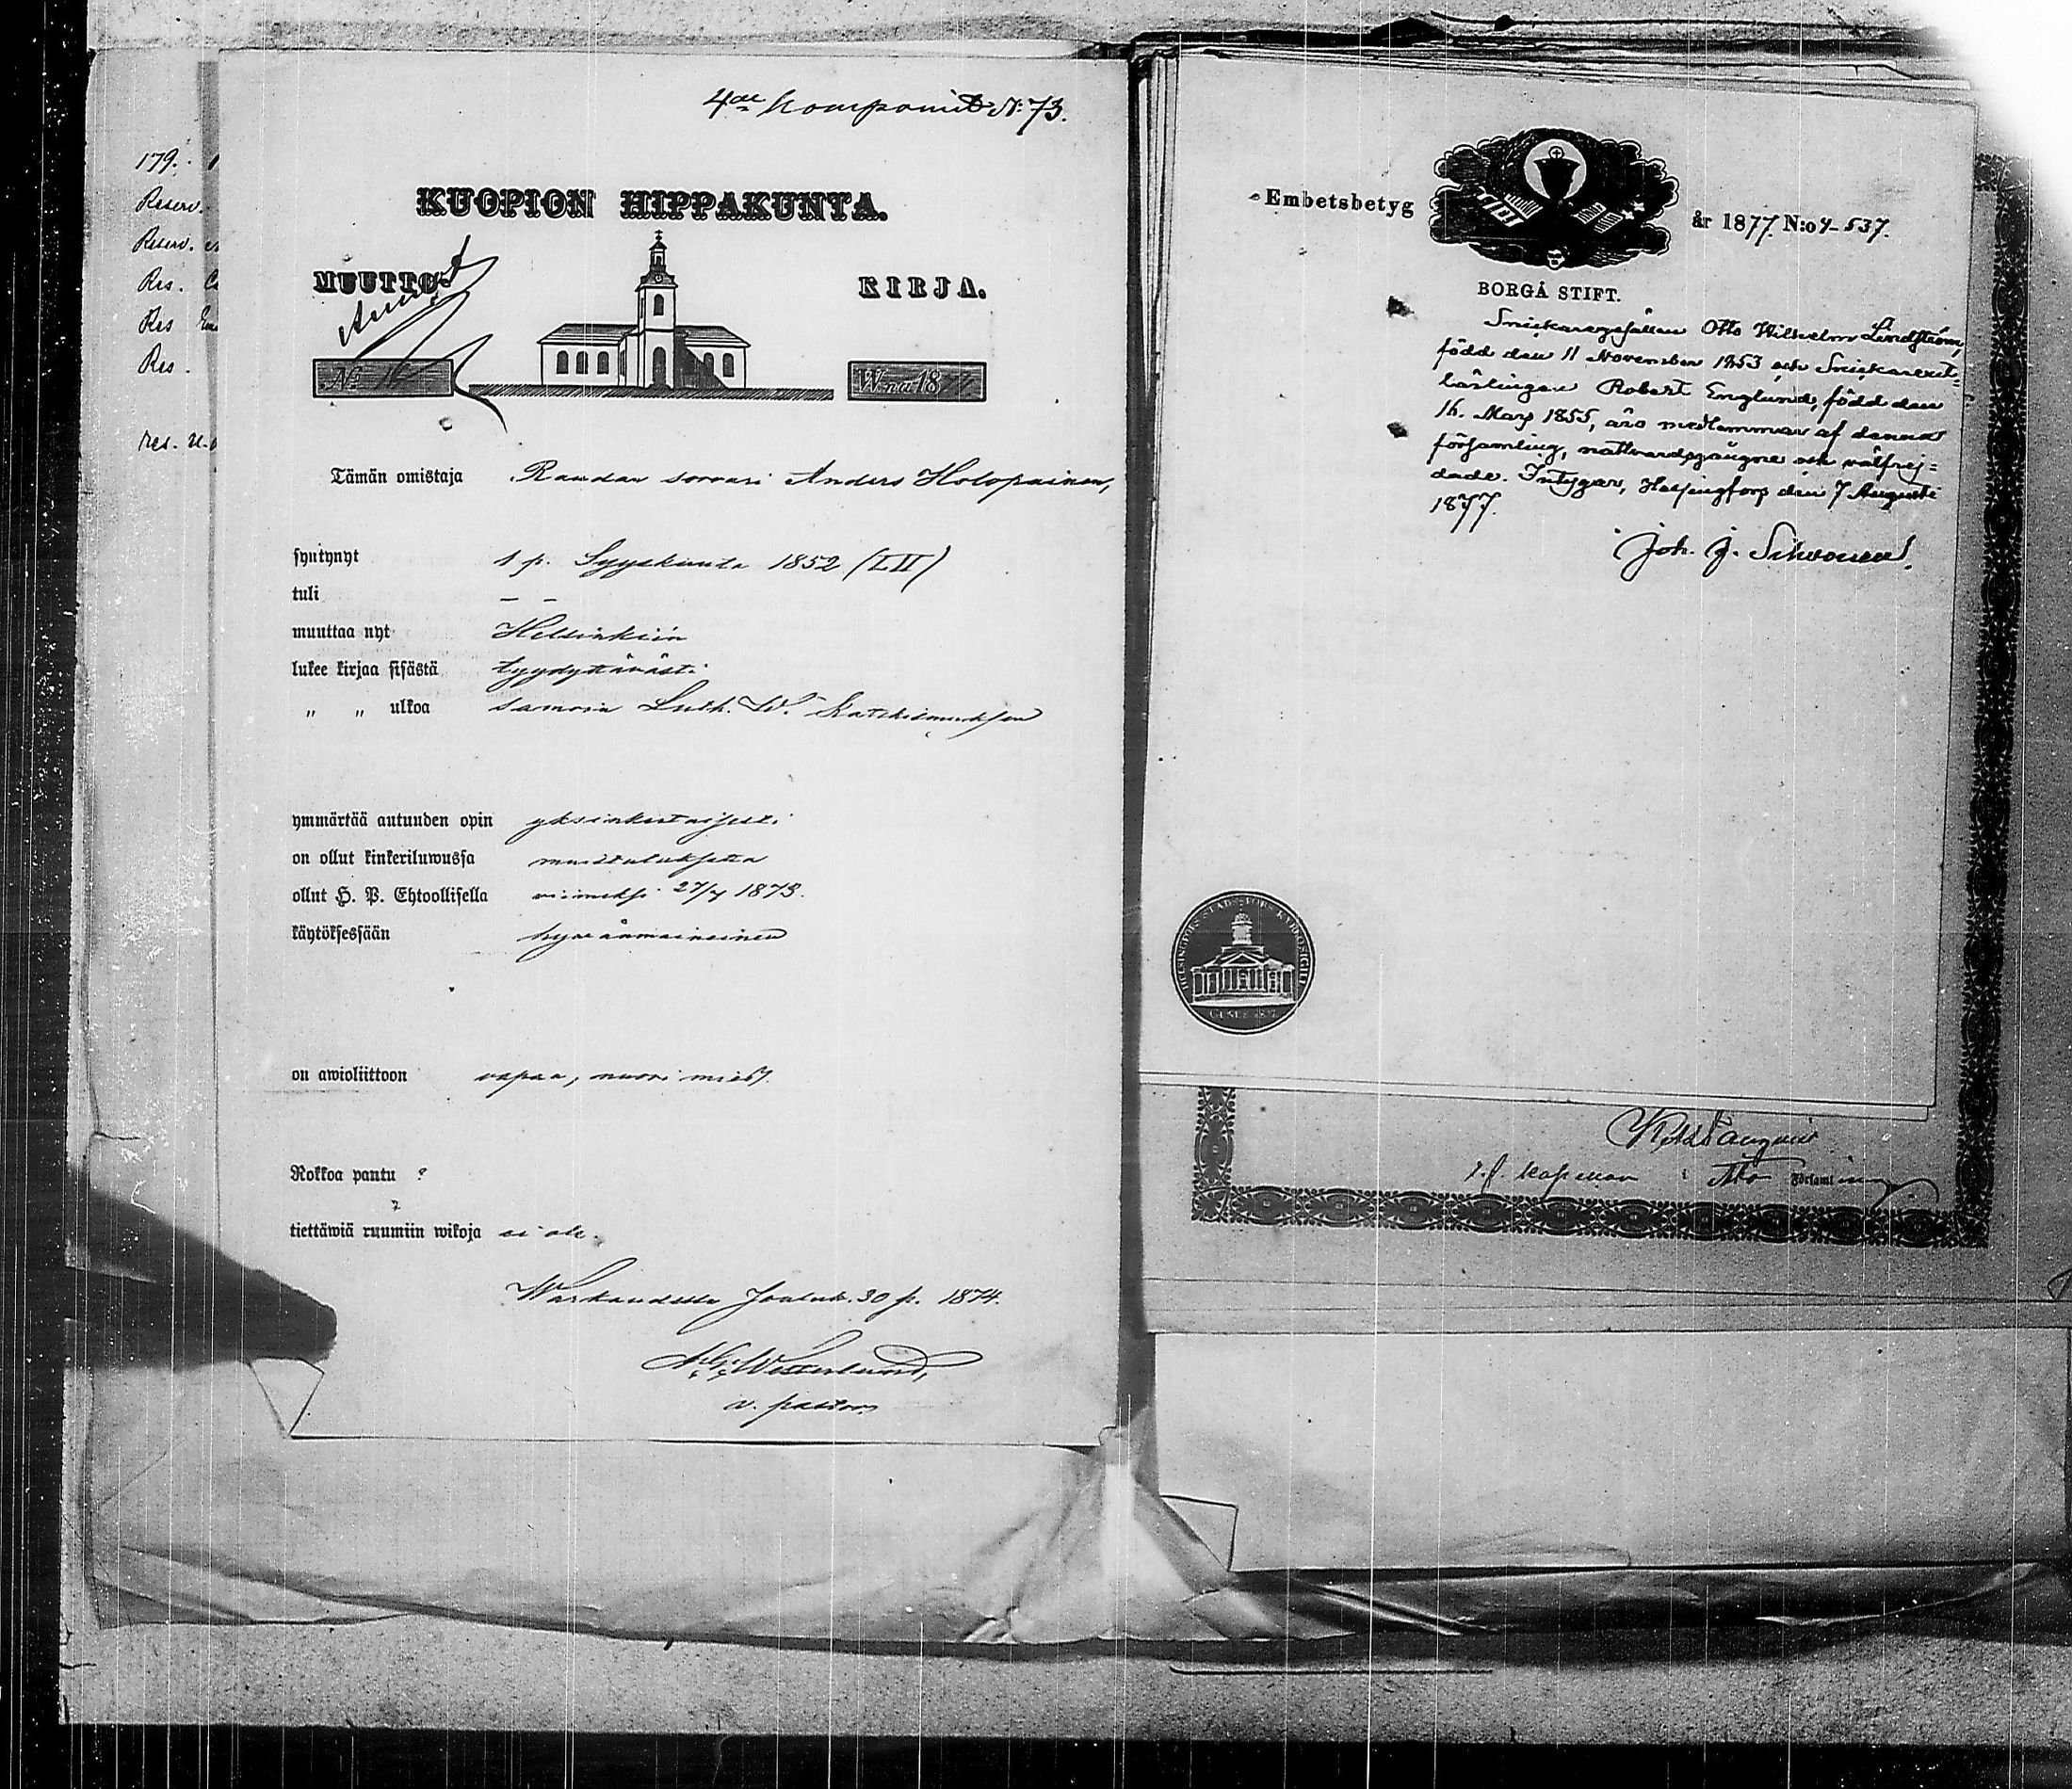 4de Kompaniet N: 73.
KUOPION HIPPAKUNTA.
MUUTTO- KIRJA.
No 16 W:na 187
Tämän omistaja Raudan sorvari Anders Holopainen,
syntynyt 1 p. Syyskuuta 1852 (LII)
tuli — —
muuttaa nyt Helsinkiin
lukee kirjaa sisästä tyydyttävästi
" " ulkoa samoin Luth. W. Katekismuksen
ymmärtää autuuden opin yksinkertaisesti
on ollut kinkeriluwussa muistutuksetta
ollut H. P. Ehtoollisella viimeksi 27/7 1873.
käytöksessään hyvänmaineinen
on awioliittoon vapaa, nuori mies.
Rokkoa pantu ?
tiettäwiä ruumiin wikoja ei ole.
Warkaudella Jouluk. 30 p. 1874.
Westerlund,
v. pastor
179.
Reserv.
Reserv.
Res.
Res
Res.
res.
Embetsbetyg år 1877. N:o 4-537.
BORGÅ STIFT.
Snickaregesällen Otto Wilhelm Lindström,
född den 11 November 1853 och Snickareut-
lärlingen Robert Englund, född den
16. Mars 1855, äro medlemmar af denna
församling, nattvardsgängne och välfrej=
dade. Intygar, Helsingfors den 7 Augusti
1877.
HELSINGFORS STADSFÖRS. KYRKOSIGILL
Kapellan i Församling